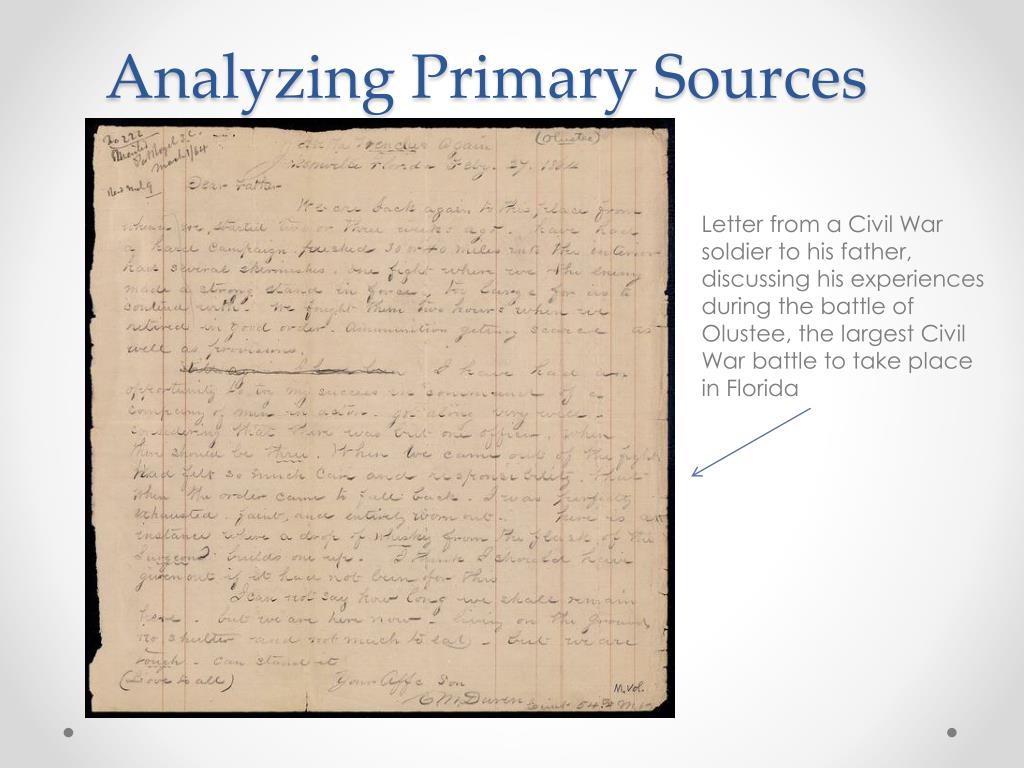 Analyzing Primary Sources
(Olustee)
In the Trenches Again
Jacksonville Florida Feby. 27. 1864
Dear Father
We are back again to this place from
whence we started two or three weeks ago. have had
a hard campaign. pushed 30 or 40 miles into the interior
had several skirmishes. one fight where we the enemy
made a strong stand in force, too large for us to
contend with. We fought them two hours when we
retired in good order. Ammunition getting scarce as
well as provisions.
I have had an
opportunity to try my success in command of a
company of men in action. got along very well.
considering that there was but one officer. when
there should be three. When we came out of the fight
had felt so much care and responsibility. that
when the order came to fall back. I was perfectly
exhausted. faint, and entirely worn out. here is an
instance where a drop of whiskey from the flask of the
Surgeon builds one up. I think I should have
given out if it had not been for this
I can not say how long we shall remain
here. but we are here now. living on the ground
no shelter and not much to eat. but we are
tough. can stand it
(Love to all)
Your Affc Son
M. Vol.
Letter from a Civil War
soldier to his father,
discussing his experiences
during the battle of
Olustee, the largest Civil
War battle to take place
in Florida